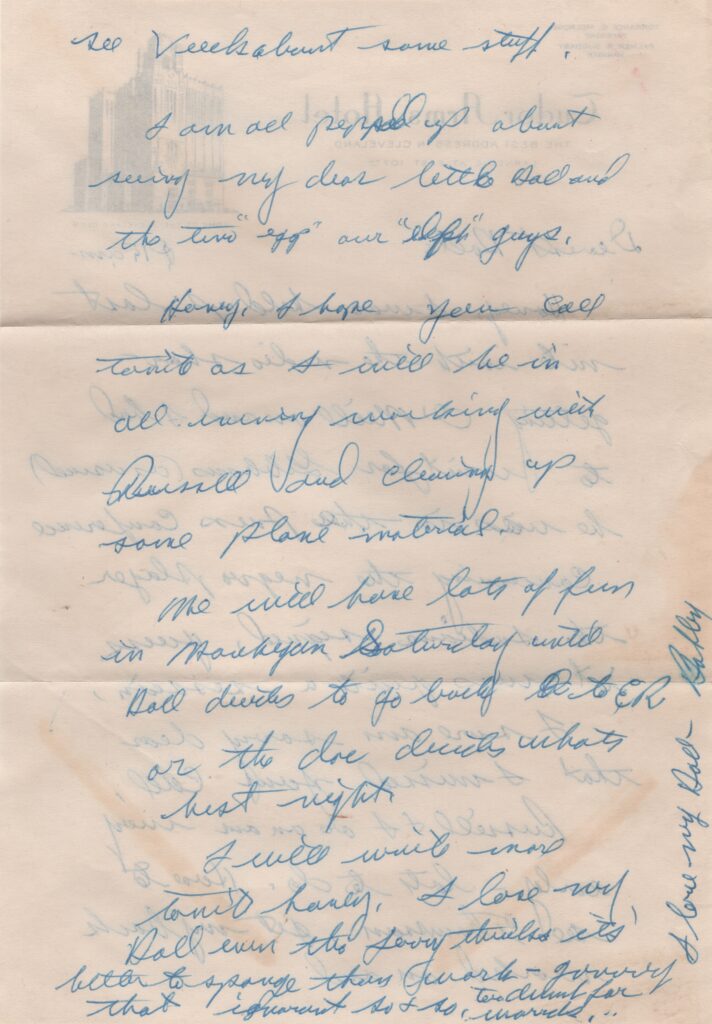 see Veeck about some stuff.
I am all pepped up about
seeing my dear little Doll and
the two "egg" our "elph" guys.
Honey, I hope you call
tonite as I will be in
all evening working with
Russell and cleaning up
some plane material.
We will have lots of fun
in Waukegan Saturday until
Doll decides to go back to ER
or the doc decides whats
best right.
I will write more
tonit honey. I love my
Doll even tho Jerry thinks its
better to sponge than work -
that ignorant so & so. too dumb for
words...
I love my Doll